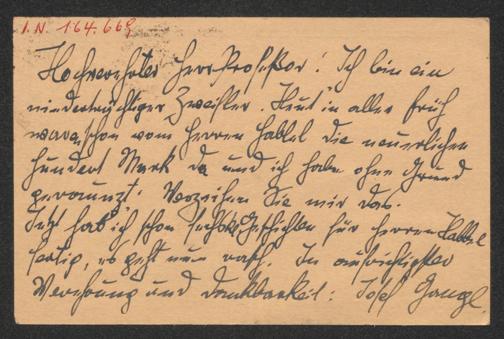 I.N. 164.669
Hochverehrter Herr Professor! Ich bin ein
niederträchtiger Zweifler. Heut in aller früh
waren schon vom Herren Habbel die neuerlichen
hundert Mark da und ich habe ohne Grund
geraunzt. Verzeihen Sie mir das.
Jetzt hab ich schon sechs Geschichten für Herren Habbel
fertig, es geht nun rasch. In aufrichtigster
Verehrung und Dankbarkeit: Josef Gangl.